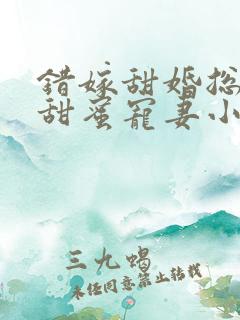 錯嫁甜婚总
甜蜜寵妻小
三九蝎
未经同意禁止转载